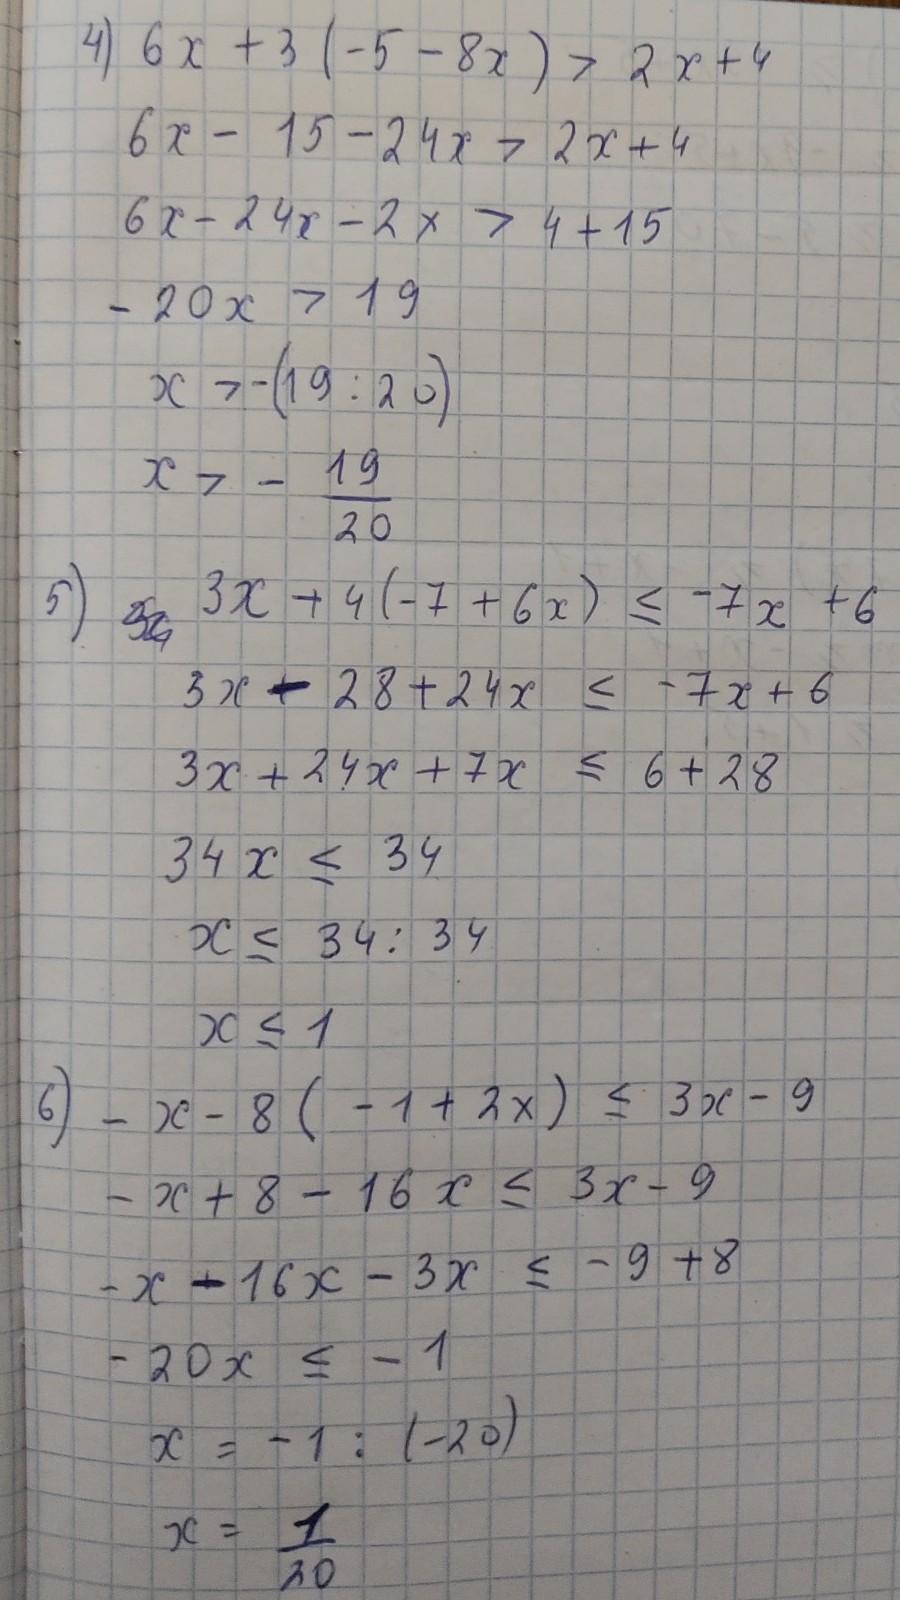 4) 6x + 3 (-5 - 8x) > 2x + 4
6x - 15 - 24x > 2x + 4
6x - 24x - 2x > 4 + 15
- 20x > 19
x > -(19 : 20)
x > - 19/20
5) 3x + 4(-7 + 6x) ≤ -7x + 6
3x - 28 + 24x ≤ -7x + 6
3x + 24x + 7x ≤ 6 + 28
34x ≤ 34
x ≤ 34 : 34
x ≤ 1
6) - x - 8 ( -1 + 2x) ≤ 3x - 9
- x + 8 - 16x ≤ 3x - 9
-x - 16x - 3x ≤ -9 + 8
- 20x ≤ - 1
x = -1 : (-20)
x = 1/20